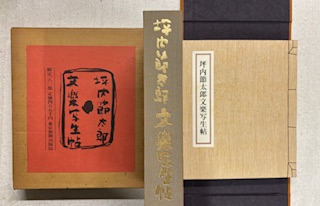 坪内節太郎
文楽写生帖
坪内節太郎文楽写生帖
坪内節太郎文楽写生帖